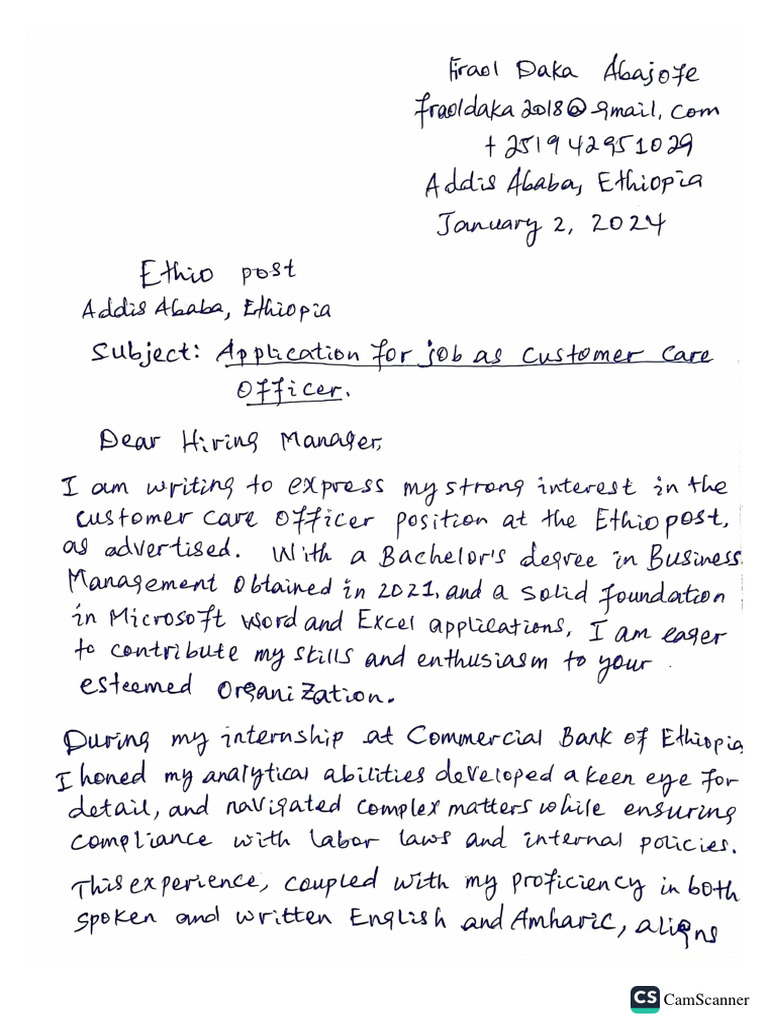 Firaol Daka Abajofe
fraoldaka2018@gmail.com
+251942951029
Addis Ababa, Ethiopia
January 2, 2024
Ethio post
Addis Ababa, Ethiopia
Subject: Application for job as customer care
Officer.
Dear Hiring Manager,
I am writing to express my strong interest in the
customer care officer position at the Ethiopost,
as advertised. With a Bachelor's degree in Business
Management obtained in 2021, and a solid foundation
in Microsoft word and Excel applications, I am eager
to contribute my skills and enthusiasm to your
esteemed organization.
During my internship at Commercial Bank of Ethiopia,
I honed my analytical abilities developed a keen eye for
detail, and navigated complex matters while ensuring
compliance with labor laws and internal policies.
This experience, coupled with my proficiency in both
spoken and written English and Amharic, aligns
CS CamScanner